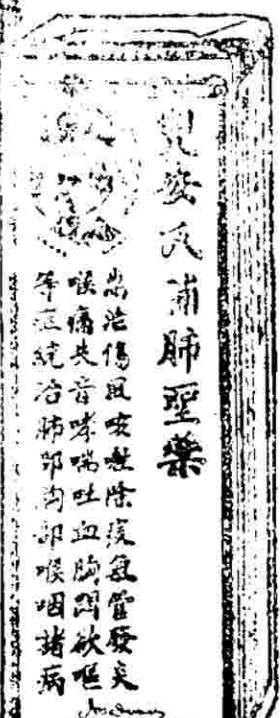 兜安氏補肺聖藥
耑治傷風咳嗽除痰氣管發炎
喉痛失音哮喘吐血胸悶欲嘔
等症統治肺部胸部喉咽諸病